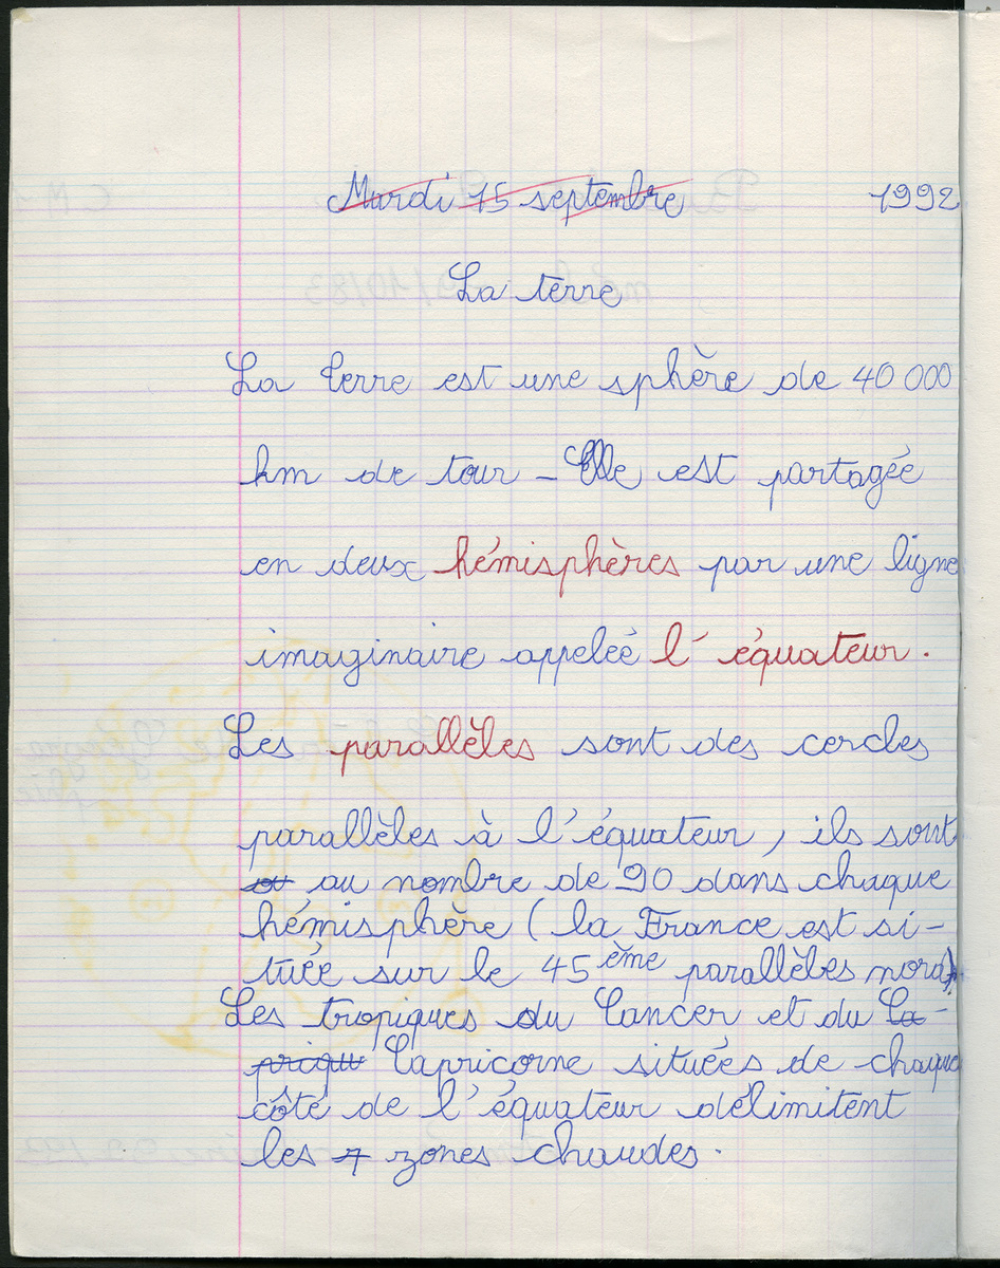 Mardi 15 septembre 1992
La terre
La terre est une sphère de 40 000
km de tour - Elle est partagée
en deux hémisphères par une ligne
imaginaire appelée l'équateur.
Les parallèles sont des cercles
parallèles à l'équateur, ils sont
ou au nombre de 90 dans chaque
hémisphère (la France est si-
tuée sur le 45ème parallèles nord).
Les tropiques du Cancer et du Ca-
priqu Capricorne situées de chaque
côté de l'équateur délimitent
les 7 zones chaudes.